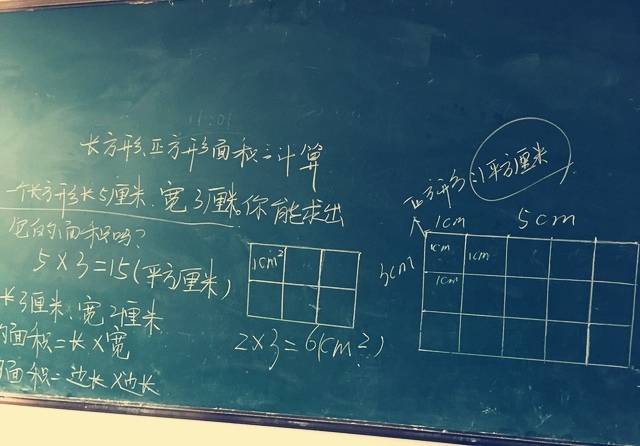 长方形、正方形面积之计算
一个长方形长5厘米,宽3厘米,你能求出
它的面积吗?
5×3=15(平方厘米)
长3厘米,宽2厘米
的面积=长×宽
面积=边长×边长
1cm²
2×3=6(cm²)
正方形:1平方厘米
1cm
5cm
3cm
1cm
1cm
1cm